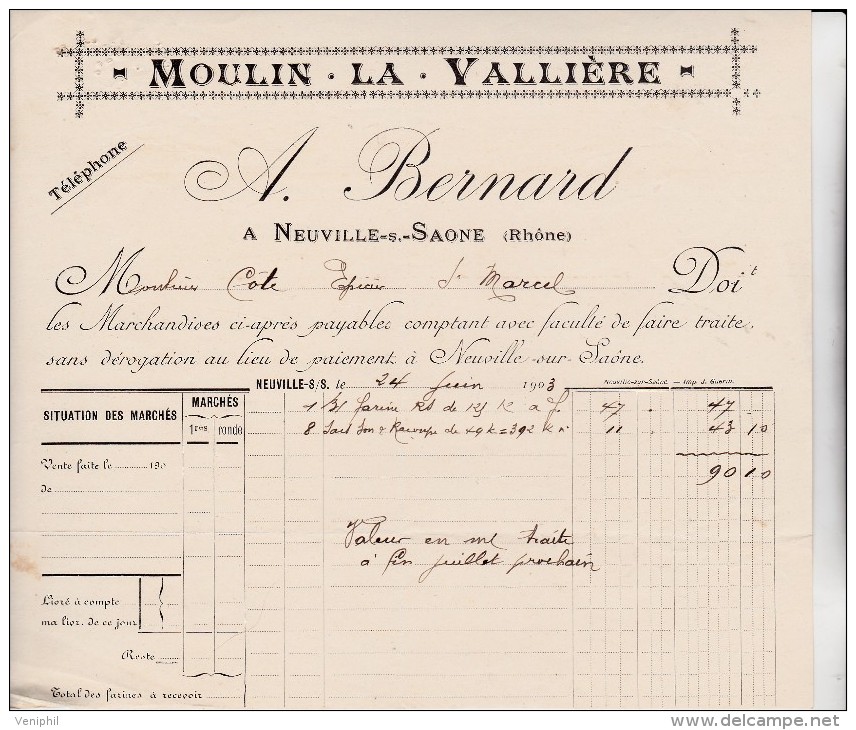 MOULIN · LA · VALLIÈRE
Téléphone
A. Bernard
A NEUVILLE-S.-SAONE (Rhône)
Monsieur Côte Epicier St Marcel Doit
les Marchandises ci-après payables comptant avec faculté de faire traite,
sans dérogation au lieu de paiement à Neuville-sur-Saône.
NEUVILLE-S/S. le 24 Juin 1903
Neuville-sur-Saône. — Imp. J. Guerin.
SITUATION DES MARCHÉS
MARCHÉS
1res ronde
1 farine de 47 47
8 Son & Recoupe de 49 k = 392 k 11 43 10
90 10
Vente faite le 190
de
Valeur en ma traite
à fin juillet prochain
Livré à compte
ma livr. de ce jour
Reste
Total des farines à recevoir
Veniphil
www.delcampe.net